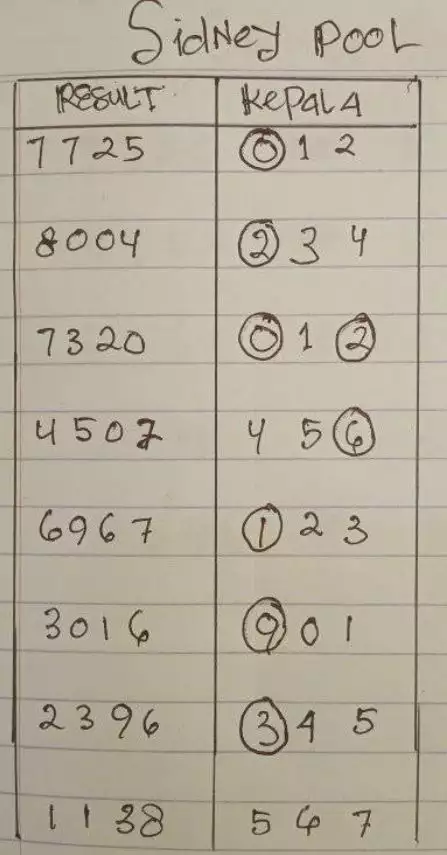 Sidney Pool
RESULT KEPALA
7725 0 1 2
8004 2 3 4
7320 0 1 2
4507 4 5 6
6967 1 2 3
3016 9 0 1
2396 3 4 5
1138 5 6 7